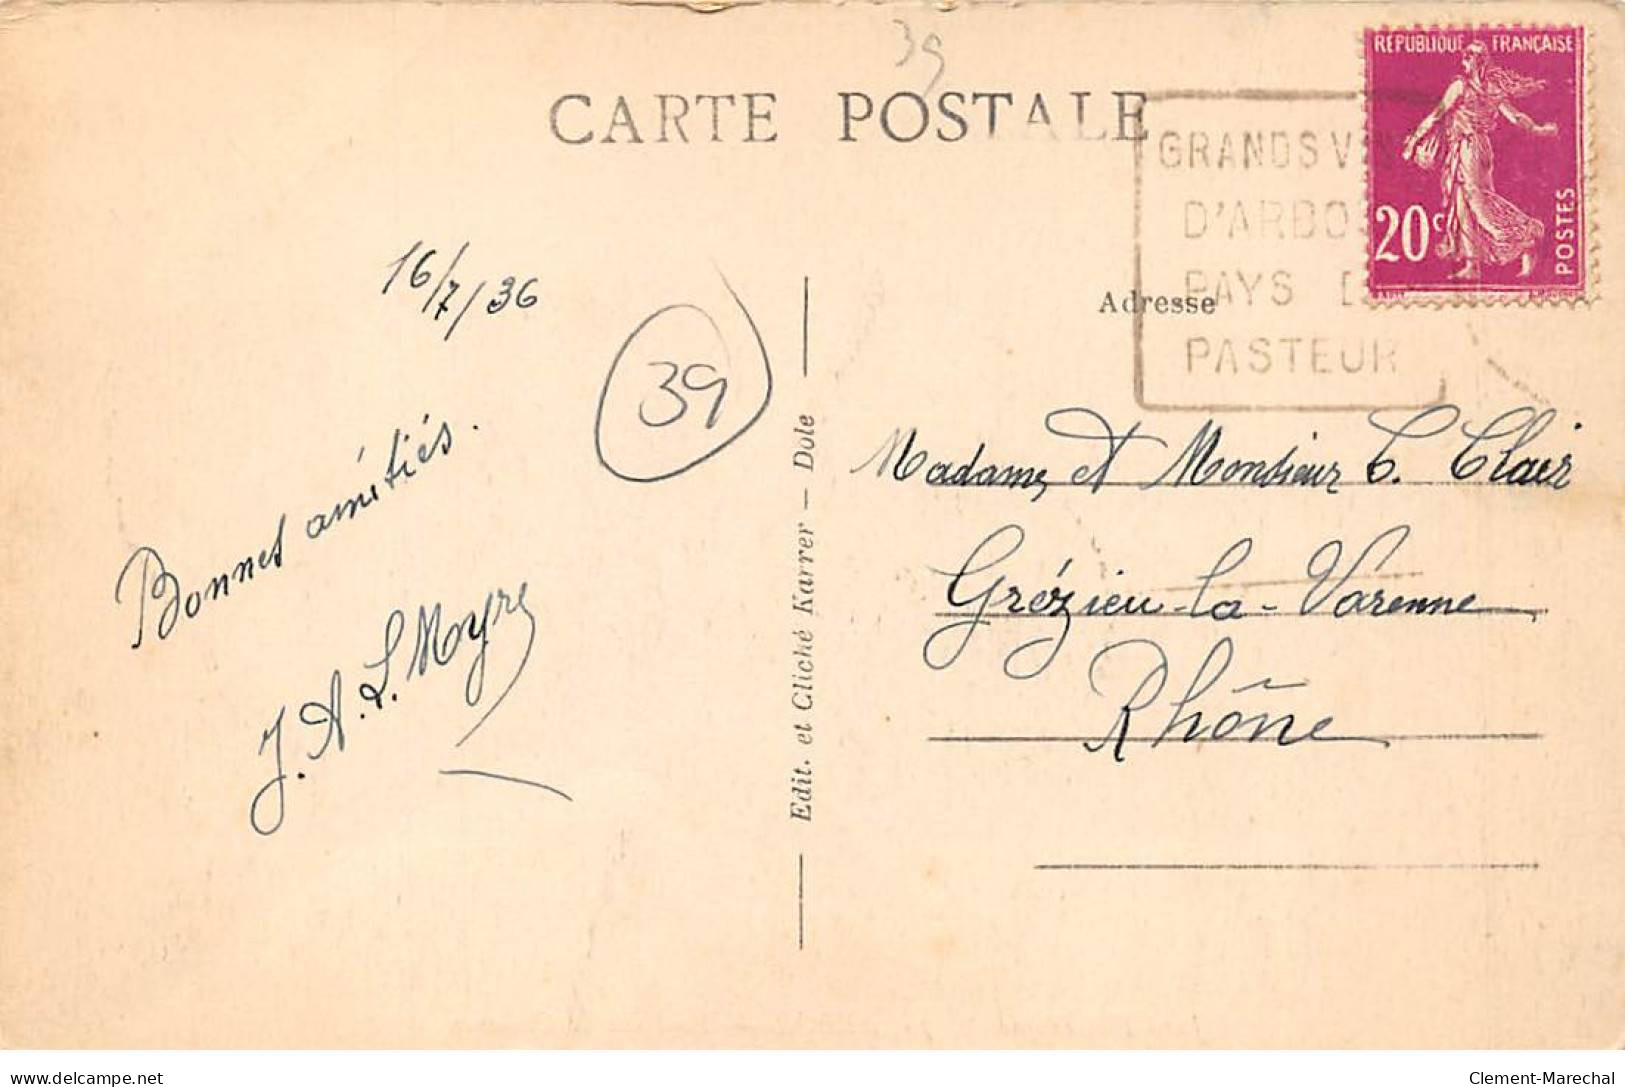 39
CARTE POSTALE
RÉPUBLIQUE FRANÇAISE
20c
POSTES
GRANDS V
D'ARBO
PAYS D
PASTEUR
16/7/36
39
Bonnes amitiés.
J. A. L. Moyre
Edit. et Cliché Karrer — Dole
Adresse
Madame et Monsieur C. Clair
Grézieu-la-Varenne
Rhône
delcampe.net
Clement-Marechal